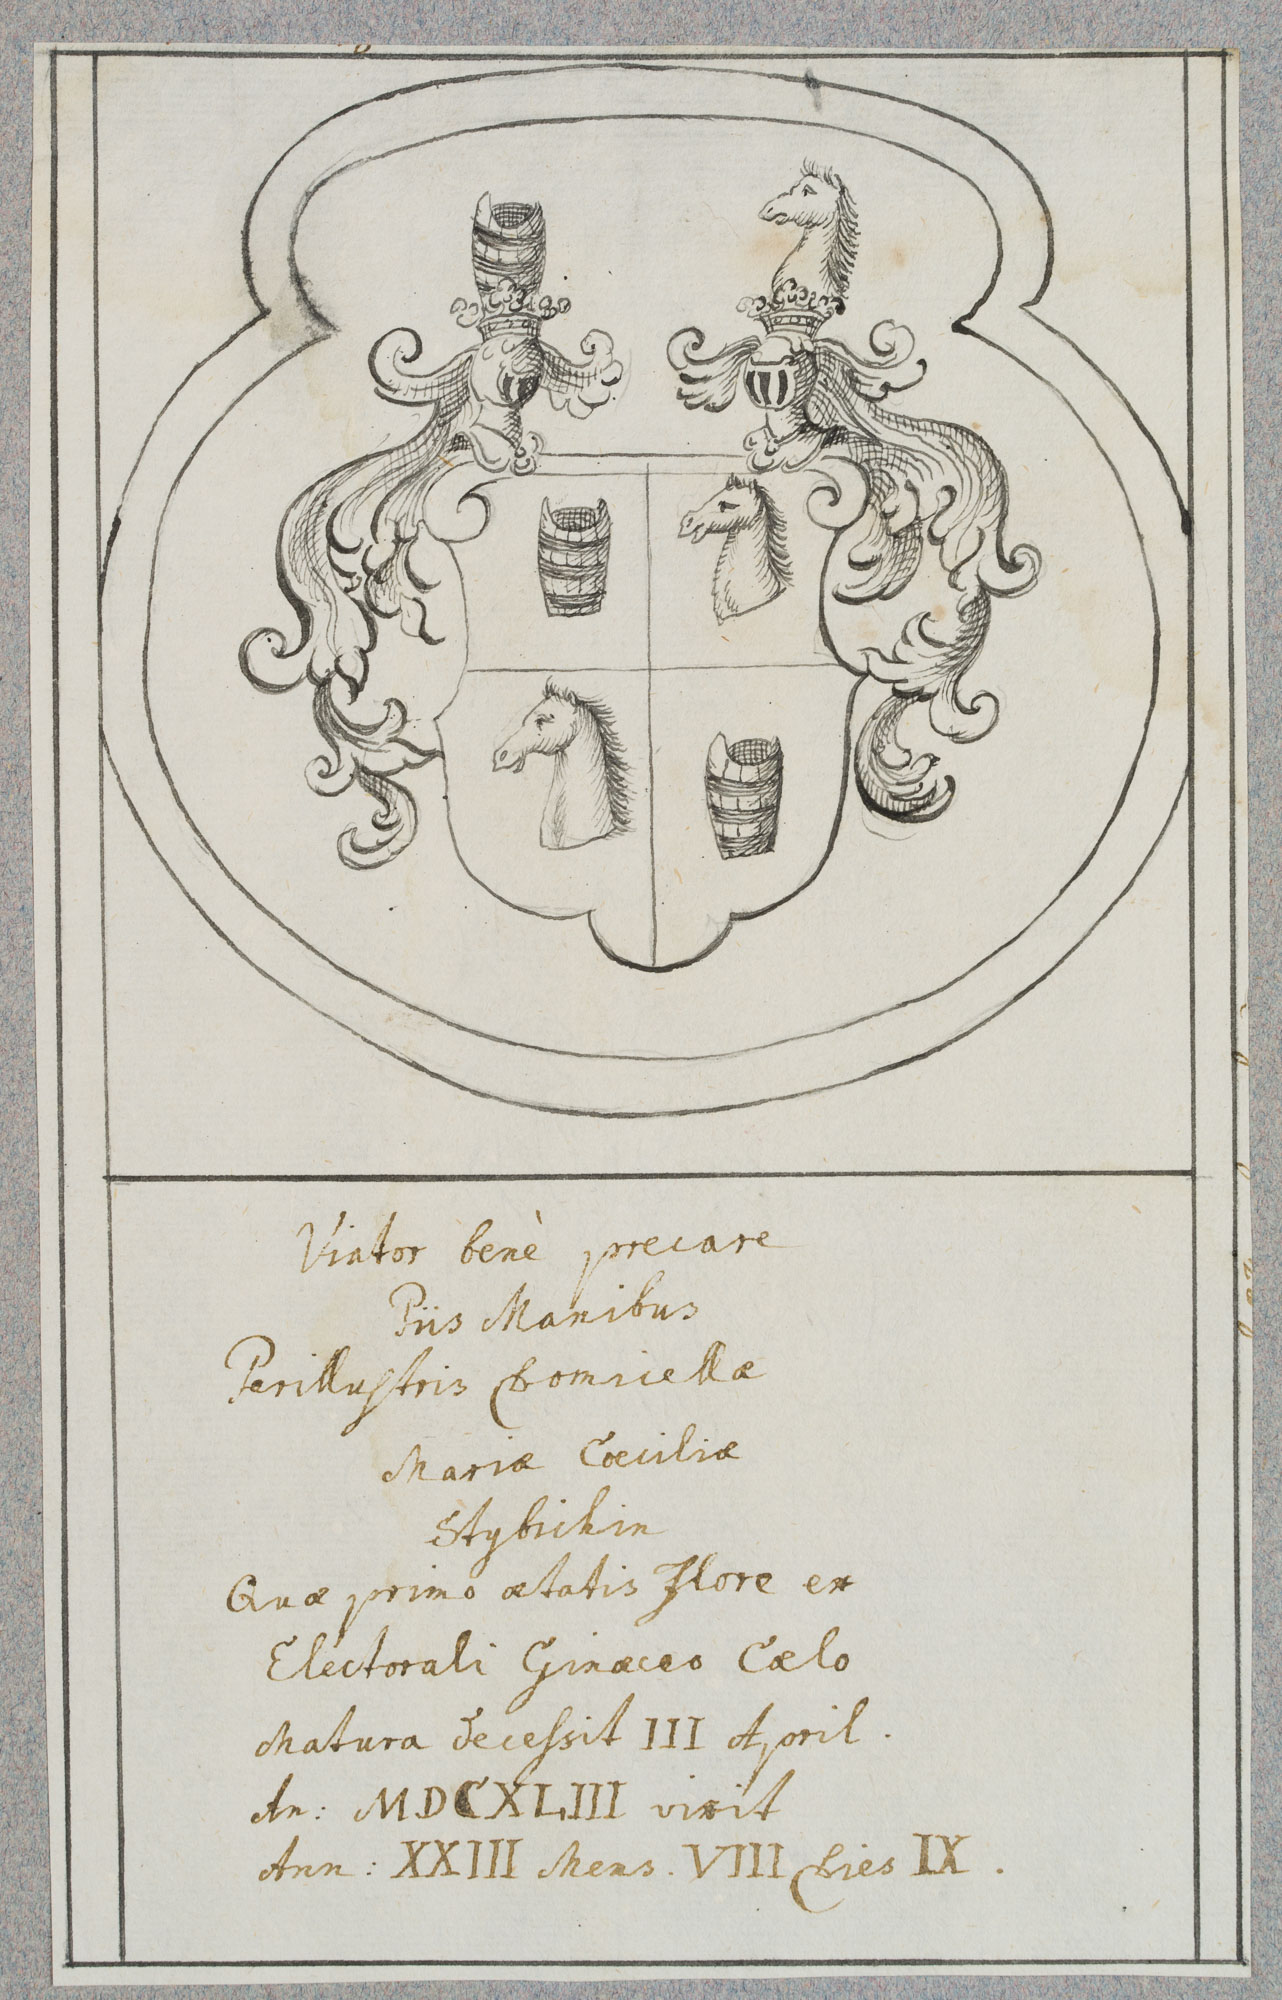 Viator benè precare
Piis Manibus
Perillustris Domicellæ
Mariæ Cœciliæ
Stybichin
Quæ primo ætatis Flore ex
Electorali Ginæceo Cœlo
Matura decessit III April.
An: MDCXLIII vixit
Ann: XXIII Mens. VIII Dies IX.